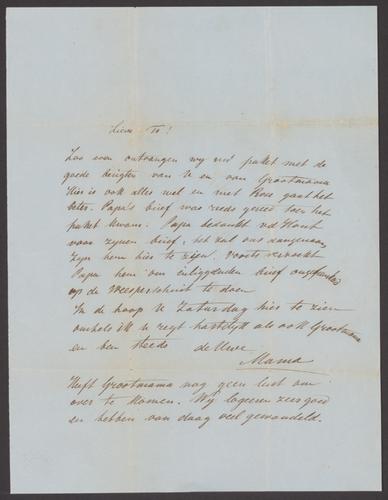 Lieve To!
Zoo even ontvangen wij uw paket met de
goede berigten van U en van Grootmama
Hier is ook alles wel en met Koos gaat het
beter. Papa's brief was reeds gereed toen het
paket kwam. Papa bedankt vd Hout
voor zijnen brief, het zal ons aangenaam
zijn hem hier te zien, voorts verzoekt
Papa hem om inliggenden brief
op de Weesperschuit te doen
In de hoop U Zaturdag hier te zien
omhels ik U regt hartelijk als ook Grootmama
en ben steeds de Uwe
Mama
Heeft Grootmama nog geen lust om
over te komen. Wij logeren zeer goed
en hebben van daag veel gewandeld.